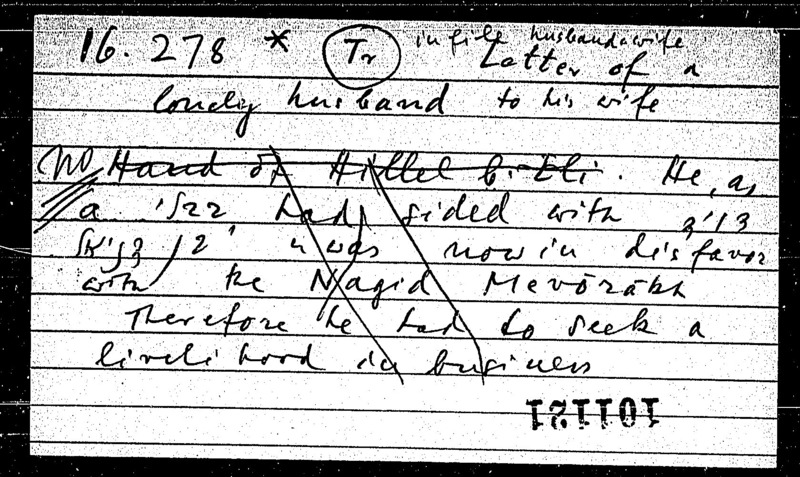 16.278 * Tr in file husband & wife
Letter of a
lonely husband to his wife
No Hand of Hillel b. Eli. He, as
a בבלי had sided with דויד
בן דניאל & was now in disfavor
with the Nagid Mevōrākh
Therefore he had to seek a
livelihood in business
101121